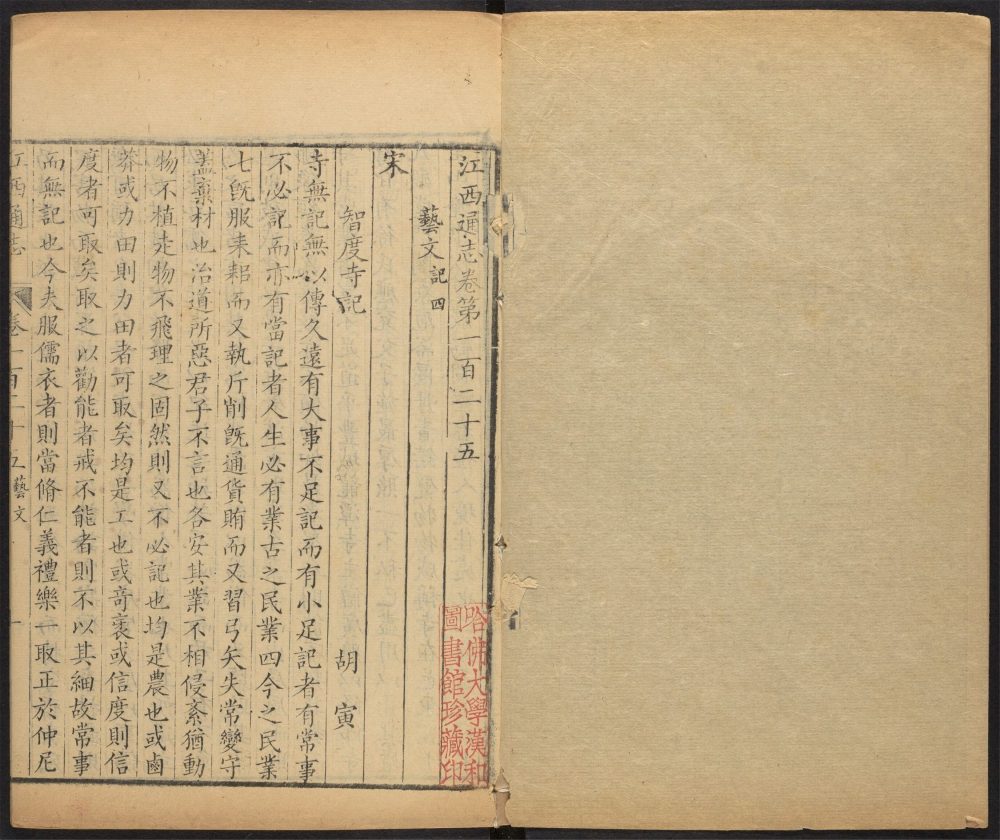 江西通志卷第一百二十五
藝文記四
宋
智度寺記 胡寅
寺無記無以傳久遠有大事不足記而有小足記者有常事
不必記而亦有當記者人生必有業古之民業四今之民業
七旣服耒耜而又執斤削旣通貨賄而又習弓矢失常變守
蓋棄材也治道所惡君子不言也各安其業不相侵紊猶動
物不植走物不飛理之固然則又不必記也均是農也或鹵
莽或力田則力田者可取矣均是工也或奇衺或信度則信
度者可取矣取之以勸能者戒不能者則不以其細故常事
而無記也今夫服儒衣者則當脩仁義禮樂一取正於仲尼
江西通志 卷一百二十五藝文 一
哈佛大學漢和
圖書館珍藏印